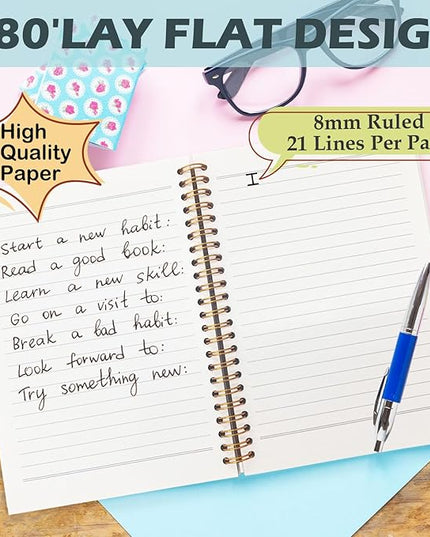 80'LAY FLAT DESIG
High
Quality
Paper
8mm Ruled
21 Lines Per Pa
Start a new habit:
Read a good book:
Learn a new skill:
Go on a visit to:
Break a bad habit:
Look forward to:
Try something new: